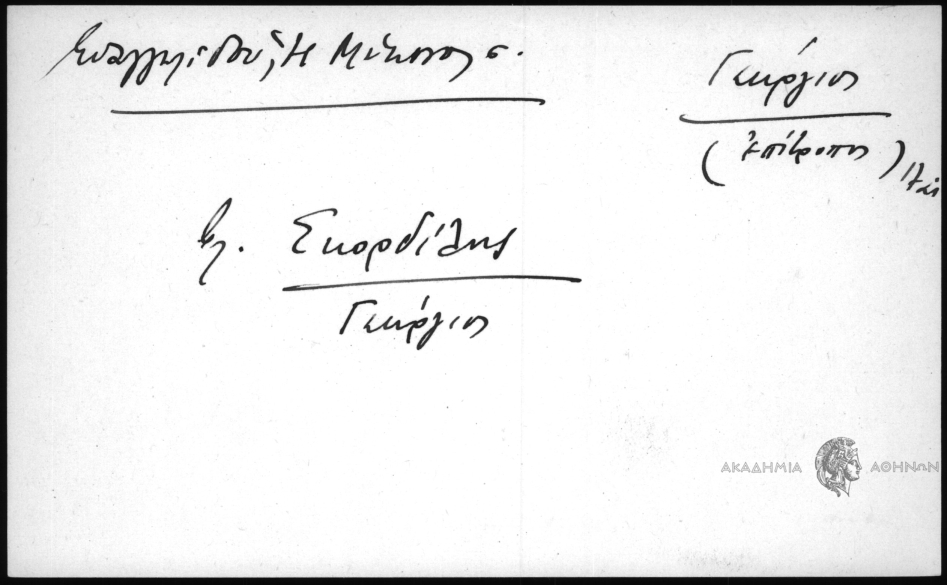 Ευαγγελίδου, Η Μύκονος σ.
Γεώργιος
(ἐπίτροπος)
βλ. Σκορδίλης
Γεώργιος
ΑΚΑΔΗΜΙΑ ΑΘΗΝΩΝ